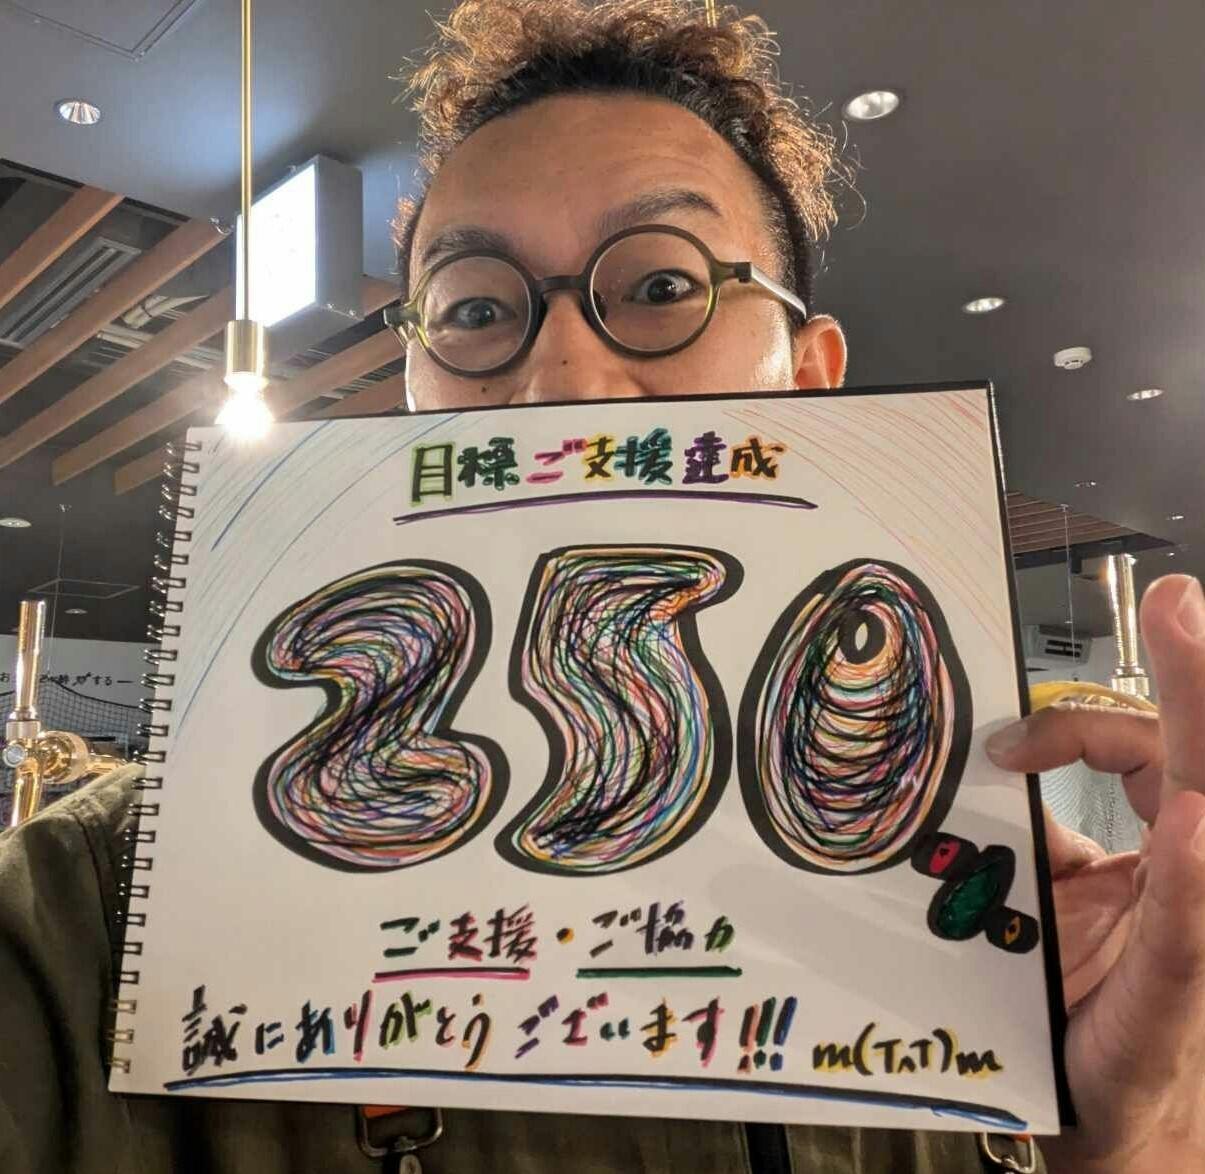 目標ご支援達成
250
ご支援・ご協力
誠にありがとうございます!!! m(T^T)m